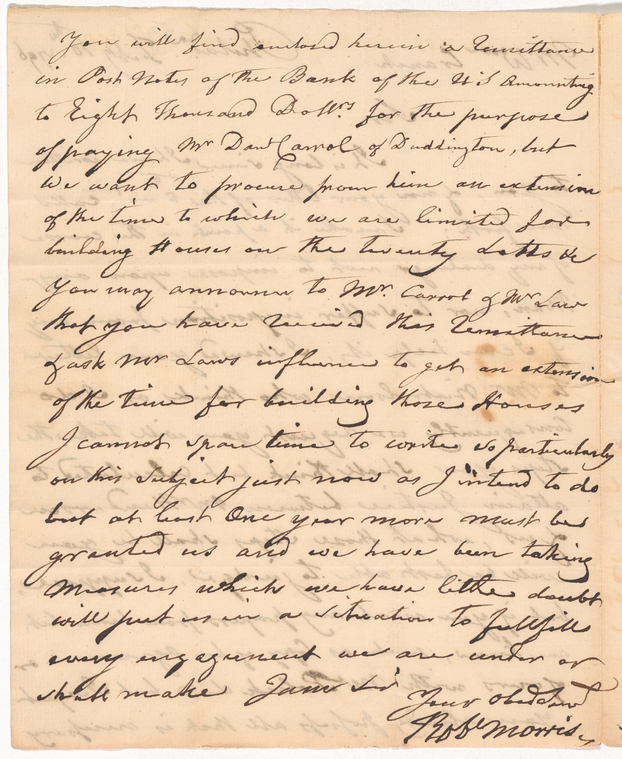 You will find enclosed herein a Remittance
in Post Notes of the Bank of the U.S amounting
to Eight Thousand Dollrs for the purpose
of paying Mr Danl Carrol of Duddington, but
we want to procure from him an extension
of the time to which we are limited for
building Houses on the twenty Lotts &c
You may announce to Mr. Carrol & Mr Law
that you have received this Remittance
& ask Mr Laws influence to get an extension
of the time for building those Houses
I cannot spare time to write so particularly
on this subject just now as I intend to do
but at least One year more must be
granted us and we have been taking
measures which we have little doubt
will put us in a situation to fullfill
every engagement we are under or
shall make I am Sir
Your obed Servt
Robt Morris